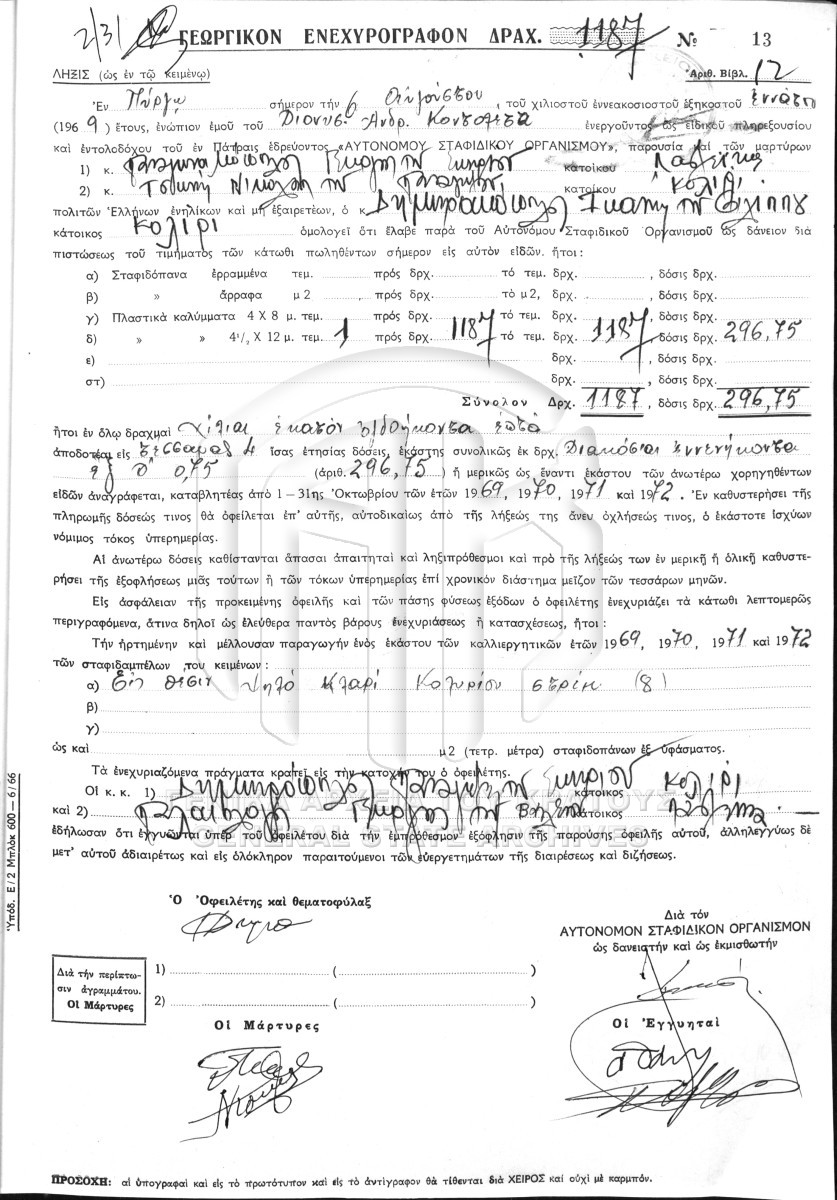 2/3/
ΓΕΩΡΓΙΚΟΝ ΕΝΕΧΥΡΟΓΡΑΦΟΝ ΔΡΑΧ. 1187 № 13
ΛΗΞΙΣ (ὡς ἐν τῷ κειμένῳ) Ἀριθ. Βιβλ. 12
Ἐν Πύργῳ σήμερον τήν 6 Αὐγούστου, τοῦ χιλιοστοῦ ἐννεακοσιοστοῦ ἑξηκοστοῦ ἐννάτου
(1969) ἔτους, ἐνώπιον ἐμοῦ τοῦ Διονυσ. Ἀνδρ. ἐνεργοῦντος ὡς εἰδικοῦ πληρεξουσίου
καί ἐντολοδόχου τοῦ ἐν Πάτραις ἑδρεύοντος «ΑΥΤΟΝΟΜΟΥ ΣΤΑΦΙΔΙΚΟΥ ΟΡΓΑΝΙΣΜΟΥ», παρουσίᾳ καί τῶν μαρτύρων
1) κ. κατοίκου
2) κ. Νικολάου τοῦ κατοίκου Κολίρι
πολιτῶν Ἑλλήνων ἐνηλίκων καί μή ἐξαιρετέων, ὁ κ. Δημητρακόπουλος Ἰωάννης τοῦ Φιλίππου
κάτοικος Κολίρι ὁμολογεῖ ὅτι ἔλαβε παρά τοῦ Αὐτονόμου Σταφιδικοῦ Ὀργανισμοῦ ὡς δάνειον διά
πιστώσεως τοῦ τιμήματος τῶν κάτωθι πωληθέντων σήμερον εἰς αὐτόν εἰδῶν. ἤτοι:
α) Σταφιδόπανα ἐρραμμένα τεμ. πρός δρχ. τό τεμ. δρχ. , δόσις δρχ.
β) » ἄρραφα μ2 , πρός δρχ. τό μ2, δρχ. , δόσις δρχ.
γ) Πλαστικά καλύμματα 4 Χ 8 μ. τεμ. πρός δρχ. τό τεμ. δρχ. , δόσις δρχ.
δ) » » 4¹/₂ Χ 12 μ. τεμ. 1 πρός δρχ. 1187 τό τεμ. δρχ. 1187, δόσις δρχ. 296,75
ε) δρχ. , δόσις δρχ.
στ) δρχ. , δόσις δρχ.
Σύνολον Δρχ. 1187, δόσις δρχ. 296,75
ἤτοι ἐν ὅλῳ δραχμαί Χίλιαι ἑκατόν ὀγδοήκοντα ἑπτά
ἀποδοτέαι εἰς τέσσαρας 4 ἴσας ἐτησίας δόσεις, ἑκάστης συνολικῶς ἐκ δρχ. Διακόσιαι ἐνενήκοντα
ἕξ 0,75 (ἀριθ. 296,75) ἤ μερικῶς ὡς ἔναντι ἑκάστου τῶν ἀνωτέρω χορηγηθέντων
εἰδῶν ἀναγράφεται, καταβλητέας ἀπό 1 – 31ης Ὀκτωβρίου τῶν ἐτῶν 1969, 1970, 1971 καί 1972. Ἐν καθυστερήσει τῆς
πληρωμῆς δόσεώς τινος θά ὀφείλεται ἐπ' αὐτῆς, αὐτοδικαίως ἀπό τῆς λήξεώς της ἄνευ ὀχλήσεώς τινος, ὁ ἑκάστοτε ἰσχύων
νόμιμος τόκος ὑπερημερίας.
Αἱ ἀνωτέρω δόσεις καθίστανται ἅπασαι ἀπαιτηταί καί ληξιπρόθεσμοι καί πρό τῆς λήξεώς των ἐν μερικῇ ἤ ὁλικῇ καθυστε-
ρήσει τῆς ἐξοφλήσεως μιᾶς τούτων ἤ τῶν τόκων ὑπερημερίας ἐπί χρονικόν διάστημα μεῖζον τῶν τεσσάρων μηνῶν.
Εἰς ἀσφάλειαν τῆς προκειμένης ὀφειλῆς καί τῶν πάσης φύσεως ἐξόδων ὁ ὀφειλέτης ἐνεχυριάζει τά κάτωθι λεπτομερῶς
περιγραφόμενα, ἅτινα δηλοῖ ὡς ἐλεύθερα παντός βάρους ἐνεχυριάσεως ἤ κατασχέσεως, ἤτοι:
Τήν ἠρτημένην καί μέλλουσαν παραγωγήν ἑνός ἑκάστου τῶν καλλιεργητικῶν ἐτῶν 1969, 1970, 1971 καί 1972
τῶν σταφιδαμπέλων του κειμένων:
α) Εἰς θέσιν Κολυρίου (8)
β)
γ)
ὡς καί μ2 (τετρ. μέτρα) σταφιδοπάνων ἐξ ὑφάσματος.
Τά ἐνεχυριαζόμενα πράγματα κρατεῖ εἰς τήν κατοχήν του ὁ ὀφειλέτης.
Οἱ κ. κ. 1) Δημητρόπουλος κάτοικος Κολίρι
καί 2) κάτοικος
ἐδήλωσαν ὅτι ἐγγυῶνται ὑπέρ τοῦ ὀφειλέτου διά τήν ἐμπρόθεσμον ἐξόφλησιν τῆς παρούσης ὀφειλῆς αὐτοῦ, ἀλληλεγγύως δέ
μετ' αὐτοῦ ἀδιαιρέτως καί εἰς ὁλόκληρον παραιτούμενοι τῶν εὐεργετημάτων τῆς διαιρέσεως καί διζήσεως.
ΓΕΝΙΚΑ ΑΡΧΕΙΑ ΤΟΥ ΚΡΑΤΟΥΣ
GENERAL STATE ARCHIVES
Ὑπόδ. Ε/2 Μπλόκ 600 — 6/66
Ὁ Ὀφειλέτης καί θεματοφύλαξ
Διά τόν
ΑΥΤΟΝΟΜΟΝ ΣΤΑΦΙΔΙΚΟΝ ΟΡΓΑΝΙΣΜΟΝ
ὡς δανειστήν καί ὡς ἐκμισθωτήν
Διά τήν περίπτω-
σιν ἀγραμμάτου.
Οἱ Μάρτυρες
1) ( )
2) ( )
Οἱ Μάρτυρες
Οἱ Ἐγγυηταί
ΠΡΟΣΟΧΗ: αἱ ὑπογραφαί καί εἰς τό πρωτότυπον καί εἰς τό ἀντίγραφον θά τίθενται διά ΧΕΙΡΟΣ καί οὐχί μέ καρμπόν.